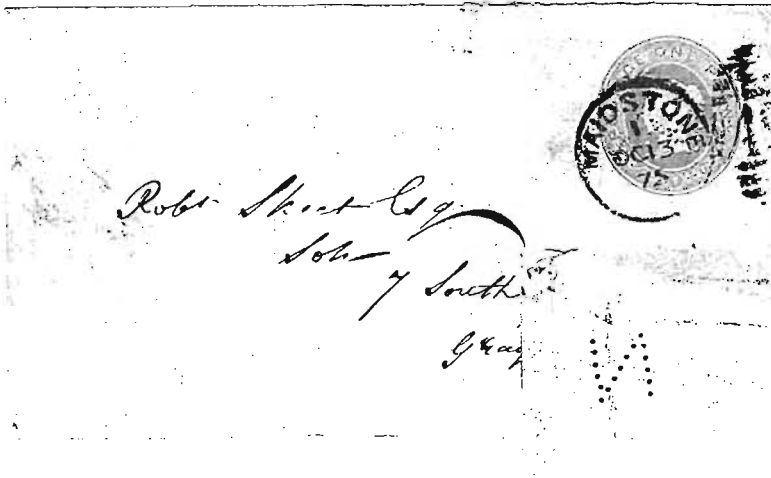 MAIDSTONE
Robt Skeet Esq
Solr
7 South
Gray
N